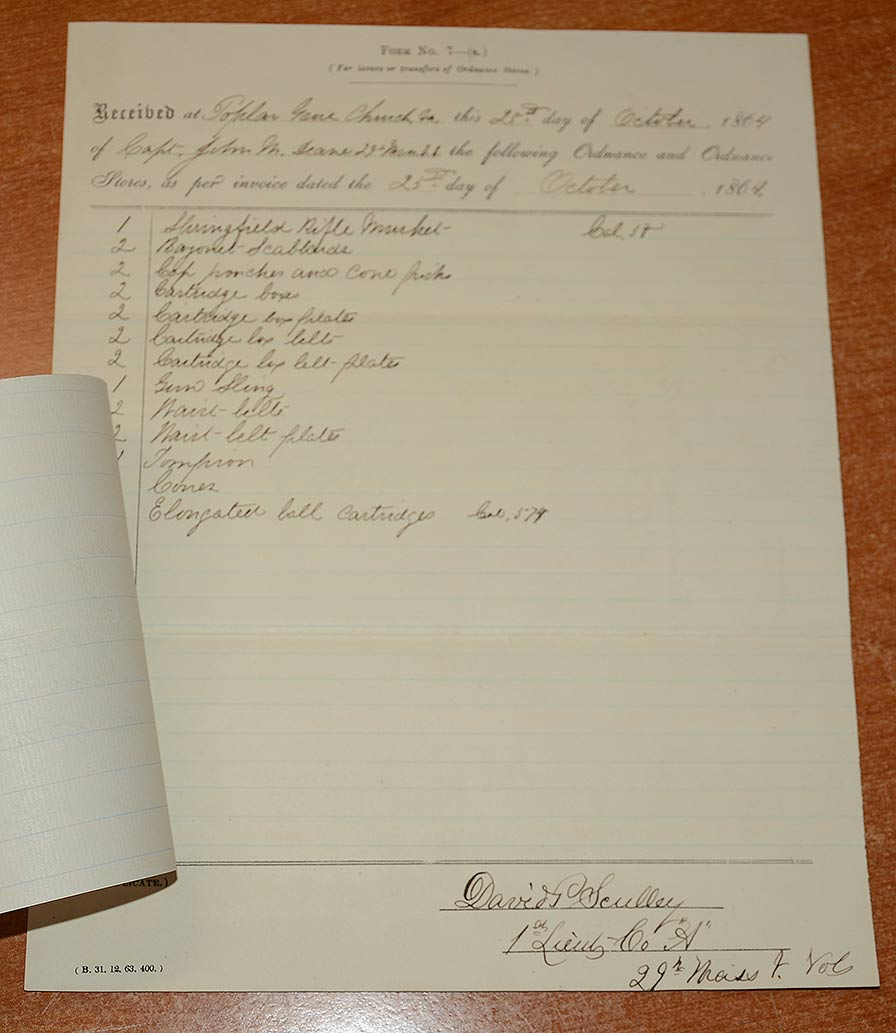 Form No. 7—(a.)
(For issues or transfers of Ordnance Stores.)
Received at Poplar Grove Church, Va. this 25th day of October, 1864
of Capt. John M. Deane 29th Mass. the following Ordnance and Ordnance
Stores, as per invoice dated the 25th day of October, 1864.
1 Springfield Rifle Musket Cal. 58
2 Bayonet Scabbards
2 Cap pouches and cone picks
2 Cartridge boxes
2 Cartridge box plates
2 Cartridge box belts
2 Cartridge box belt plates
1 Gun Sling
2 Waist belts
2 Waist belt plates
1 Tompion
Cones
Elongated ball cartridges Cal. 574
LICATE.)
David P. Sculley
1st Lieut Co "A"
29th Mass V. Vols
(B. 31. 12. 63. 400.)